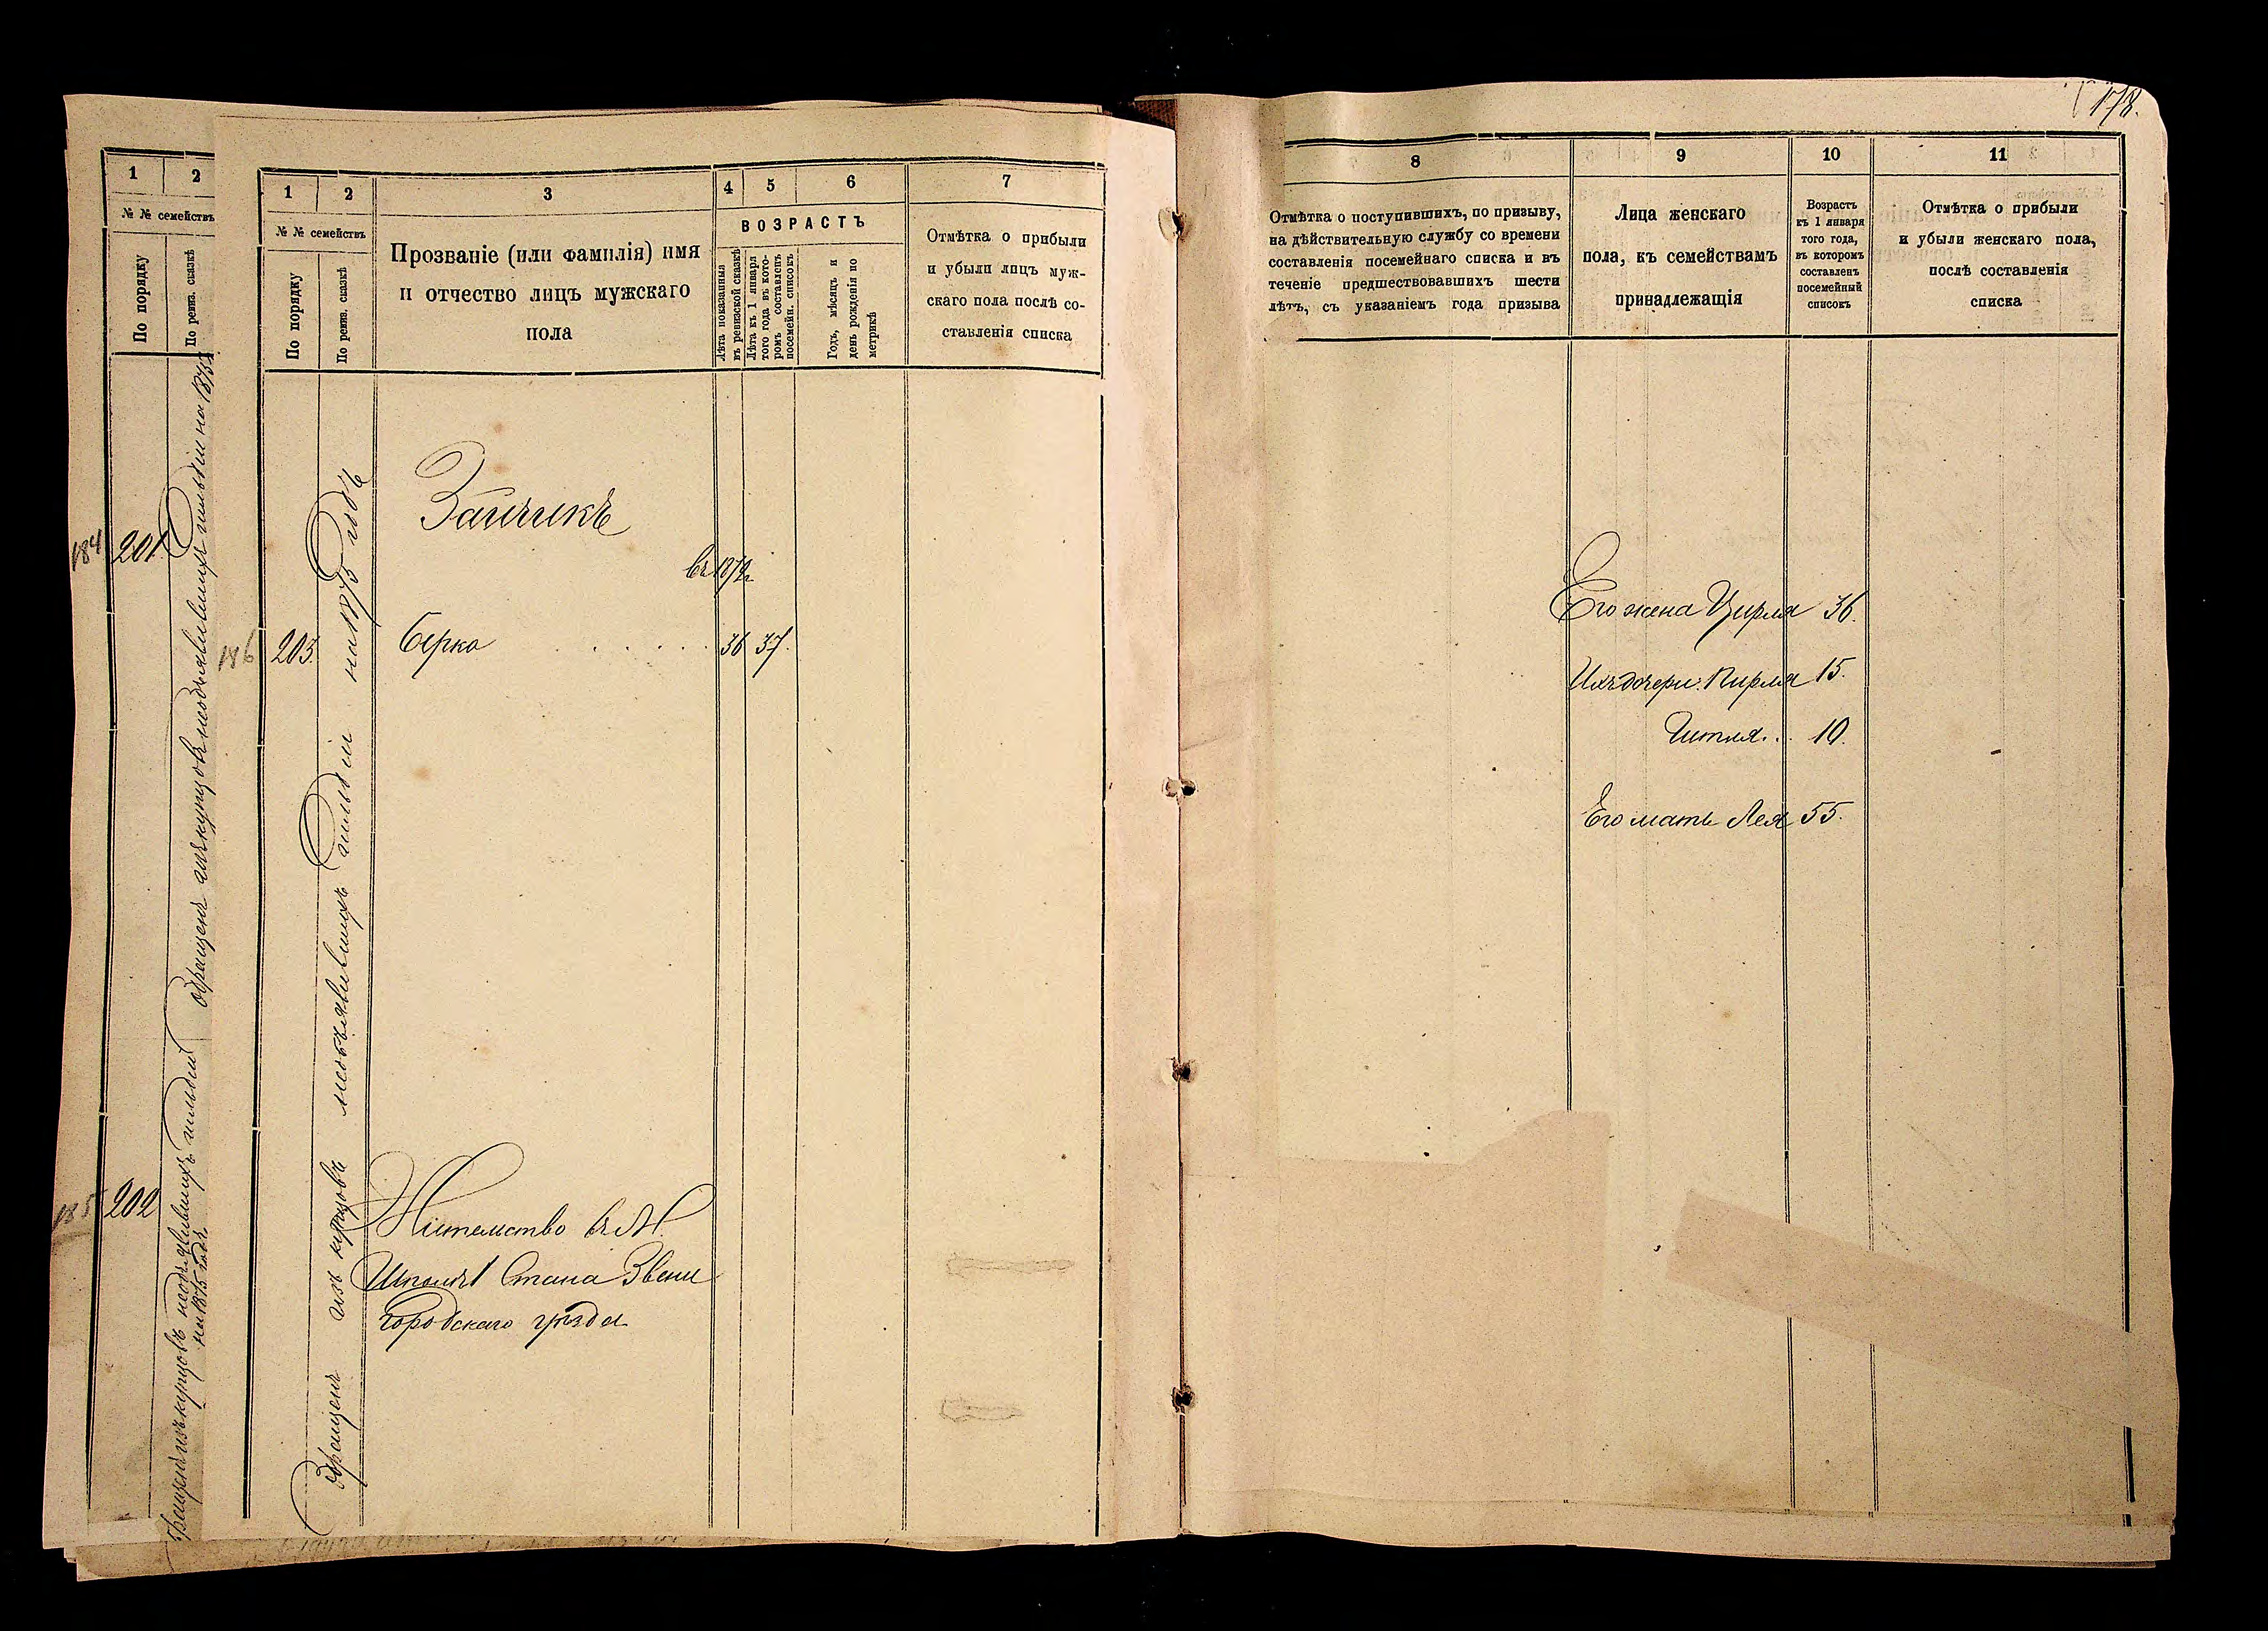 178.
1
2
№ № семействъ
По порядку
По ревиз. сказкѣ
184
201.
обращенъ изъ купцовъ необъявившихъ гильдіи на 1875
185
202
изъ купцовъ необъявившихъ гильдіи
на 1875 годъ
1
2
3
4
5
6
7
№ № семействъ
По порядку
По ревиз. сказкѣ
Прозваніе (или фамилія) имя
и отчество лицъ мужскаго
пола
ВОЗРАСТЪ
Лѣта показанныя
въ ревизской сказкѣ
Лѣта къ 1 января
того года въ кото-
ромъ составленъ
посемейн. списокъ
Годъ, мѣсяцъ и
день рожденія по
метрикѣ
Отмѣтка о прибыли
и убыли лицъ муж-
скаго пола послѣ со-
ставленія списка
Обращенъ изъ купцовъ необъявившихъ гильдіи на 1875 годъ
Зайчикъ
въ 1874
186
203.
Берко . . . . . . 36 37.
Жительство въ М.
Шполѣ 1 Стана Звени
городскаго уѣзда
8
9
10
11
Отмѣтка о поступившихъ, по призыву,
на дѣйствительную службу со времени
составленія посемейнаго списка и въ
теченіе предшествовавшихъ шести
лѣтъ, съ указаніемъ года призыва
Лица женскаго
пола, къ семействамъ
принадлежащія
Возрастъ
къ 1 января
того года,
въ которомъ
составленъ
посемейный
списокъ
Отмѣтка о прибыли
и убыли женскаго пола,
послѣ составленія
списка
Его жена Цирля 36.
Ихъ дочери: Пирля 15.
Гитля . . 10.
Его мать Лея 55.